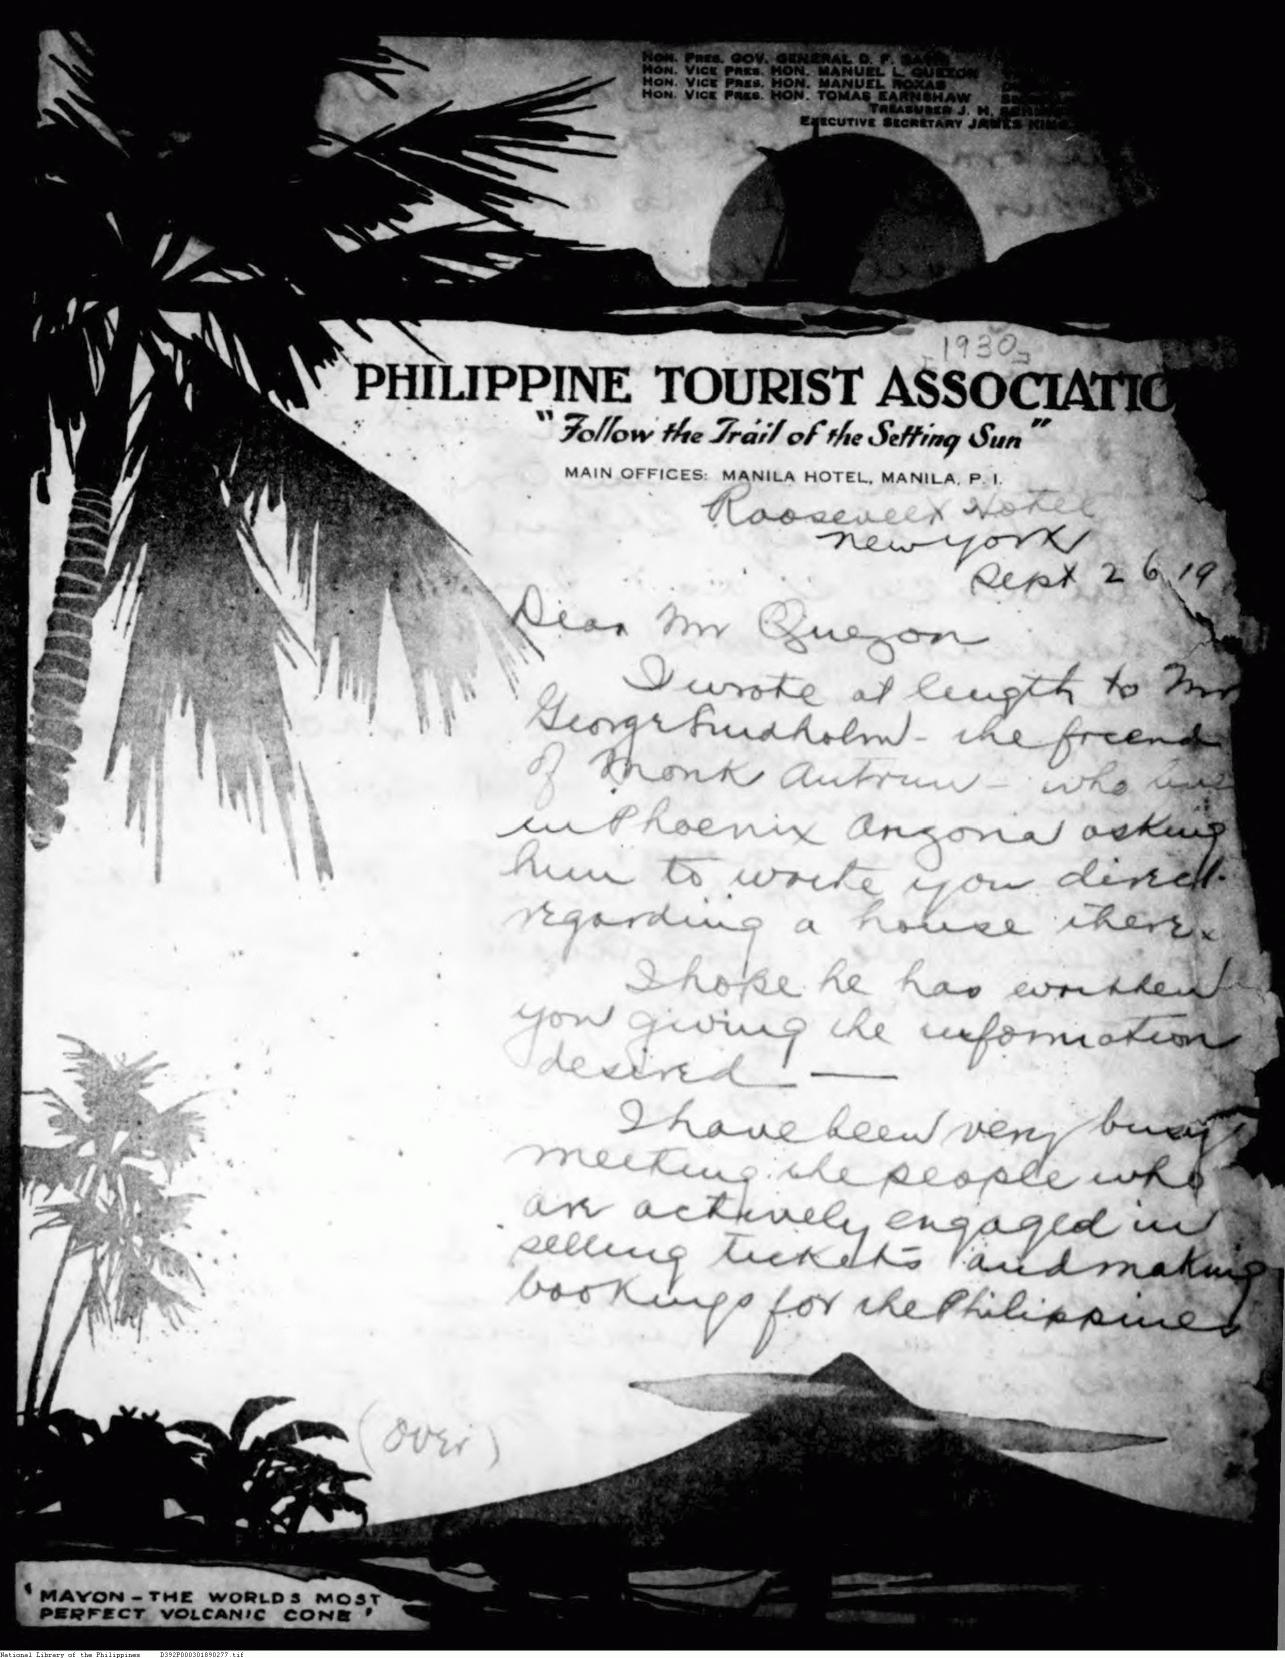 HON. PRES. GOV. GENERAL D. F. DAVIS
HON. VICE PRES. HON. MANUEL L. QUEZON
HON. VICE PRES. HON. MANUEL ROXAS
HON. VICE PRES. HON. TOMAS EARNSHAW
TREASURER J. H.
EXECUTIVE SECRETARY JAMES KING
-1930-
PHILIPPINE TOURIST ASSOCIATIO
"Follow the Trail of the Setting Sun"
MAIN OFFICES: MANILA HOTEL, MANILA, P. I.
Roosevelt Hotel
New York
Sept 26, 19
Dear Mr Quezon
I wrote at length to Mr
George - the friend
of Monk - who
in Phoenix Arizona asking
him to write you direct.
regarding a house there.
I hope he has written
you giving the information
desired —
I have been very busy
meeting the people who
are actively engaged in
selling tickets and making
bookings for the Philippines
(over)
'MAYON - THE WORLDS MOST
PERFECT VOLCANIC CONE'
National Library of the Philippines D392P000301890277.tif